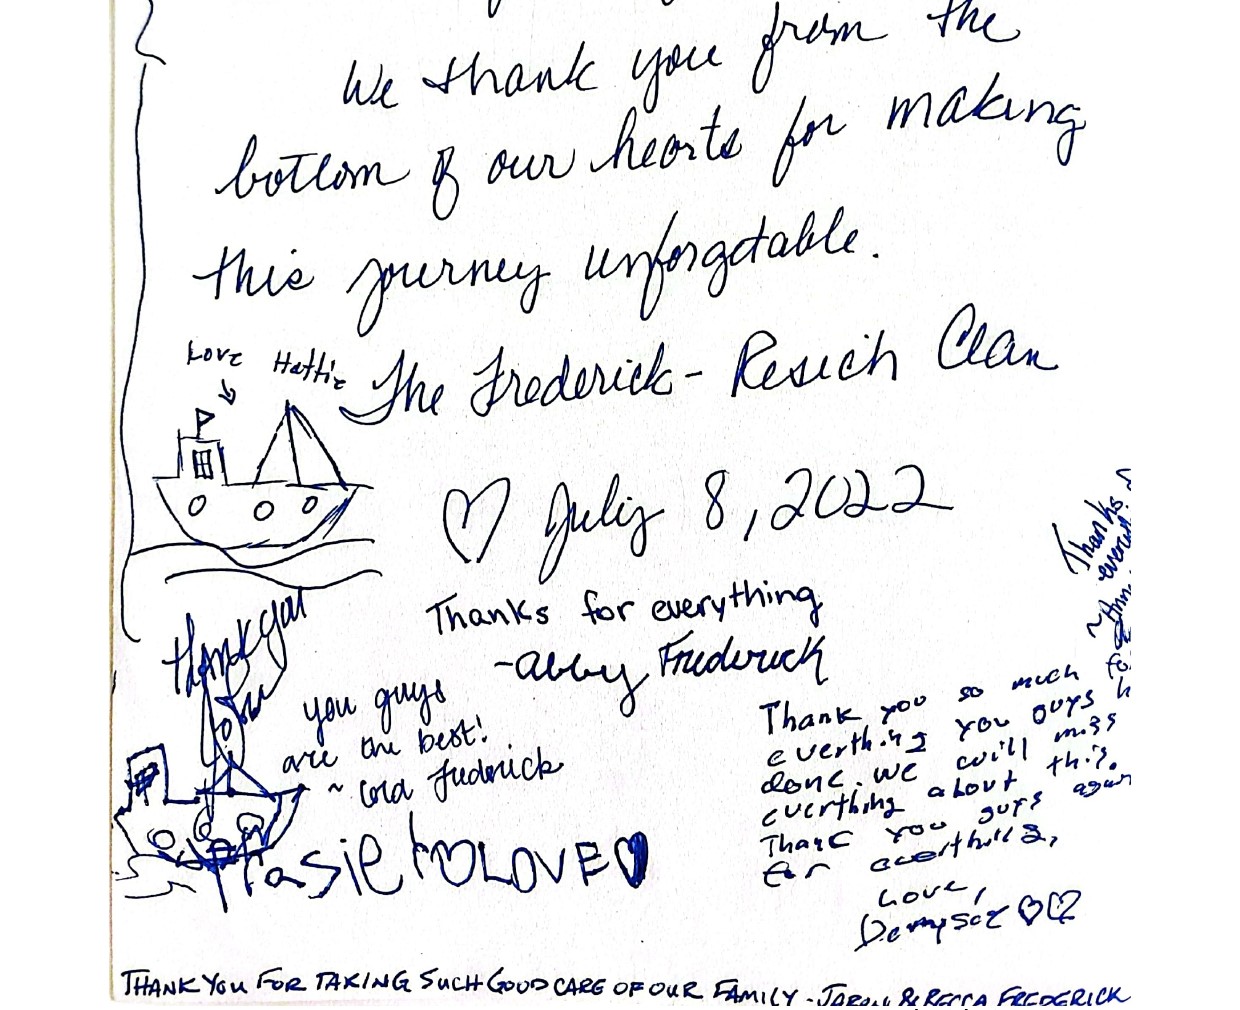 We thank you from the
bottom of our hearts for making
this journey unforgetable.
Love Hattie
The Frederick - Resech Clan
♡ July 8, 2022
Thanks for everything
- Abby Frederick
Thanks
thank you
you guys
are the best!
~ Cora Frederick
to LOVE ♥
Thank you so much for
everthing you guys h
done. we will miss
everthing about this.
Thank you guys again
for
Love,
Dempsey ♡♡
THANK YOU FOR TAKING SUCH GOOD CARE OF OUR FAMILY - JARON & RECCA FREDERICK